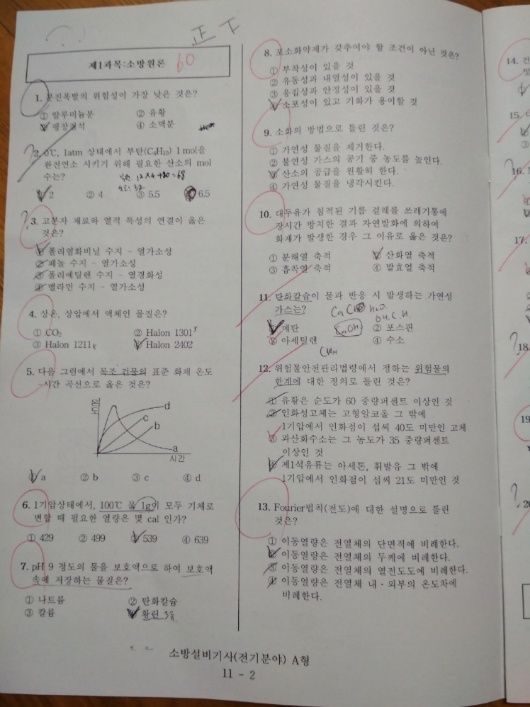 제1과목:소방원론
60
1. 분진폭발의 위험성이 가장 낮은 것은?
① 알루미늄분 ② 유황
③ 팽창질석 ④ 소맥분
2. 0℃, 1atm 상태에서 부탄(C₄H₁₀) 1mol을
완전연소 시키기 위해 필요한 산소의 mol
수는?
① 2 ② 4 ③ 5.5 ④ 6.5
3. 고분자 재료와 열적 특성의 연결이 옳은
것은?
① 폴리염화비닐 수지 - 열가소성
② 페놀 수지 - 열가소성
③ 폴리에틸렌 수지 - 열경화성
④ 멜라민 수지 - 열가소성
4. 상온, 상압에서 액체인 물질은?
① CO₂ ② Halon 1301
③ Halon 1211 ④ Halon 2402
5. 다음 그림에서 목조 건물의 표준 화재 온도
-시간 곡선으로 옳은 것은?
온도
d
c
b
a
시간
① a ② b ③ c ④ d
6. 1기압상태에서, 100℃ 물 1g이 모두 기체로
변할 때 필요한 열량은 몇 cal 인가?
① 429 ② 499 ③ 539 ④ 639
7. pH 9 정도의 물을 보호액으로 하여 보호액
속에 저장하는 물질은?
① 나트륨 ② 탄화칼슘
③ 칼륨 ④ 황린
8. 포소화약제가 갖추어야 할 조건이 아닌 것은?
① 부착성이 있을 것
② 유동성과 내열성이 있을 것
③ 응집성과 안정성이 있을 것
④ 소포성이 있고 기화가 용이할 것
9. 소화의 방법으로 틀린 것은?
① 가연성 물질을 제거한다.
② 불연성 가스의 공기 중 농도를 높인다.
③ 산소의 공급을 원활히 한다.
④ 가연성 물질을 냉각시킨다.
10. 대두유가 침적된 기름 걸레를 쓰레기통에
장시간 방치한 결과 자연발화에 의하여
화재가 발생한 경우 그 이유로 옳은 것은?
① 분해열 축적 ② 산화열 축적
③ 흡착열 축적 ④ 발효열 축적
11. 탄화칼슘이 물과 반응 시 발생하는 가연성
가스는?
① 메탄 ② 포스핀
③ 아세틸렌 ④ 수소
12. 위험물안전관리법령에서 정하는 위험물의
한계에 대한 정의로 틀린 것은?
① 유황은 순도가 60 중량퍼센트 이상인 것
② 인화성고체는 고형알코올 그 밖에
1기압에서 인화점이 섭씨 40도 미만인 고체
③ 과산화수소는 그 농도가 35 중량퍼센트
이상인 것
④ 제1석유류는 아세톤, 휘발유 그 밖에
1기압에서 인화점이 섭씨 21도 미만인 것
13. Fourier법칙(전도)에 대한 설명으로 틀린
것은?
① 이동열량은 전열체의 단면적에 비례한다.
② 이동열량은 전열체의 두께에 비례한다.
③ 이동열량은 전열체의 열전도도에 비례한다.
④ 이동열량은 전열체 내·외부의 온도차에
비례한다.
소방설비기사(전기분야) A형
11 - 2
14.
15.
16.
17.
18.
19
20.